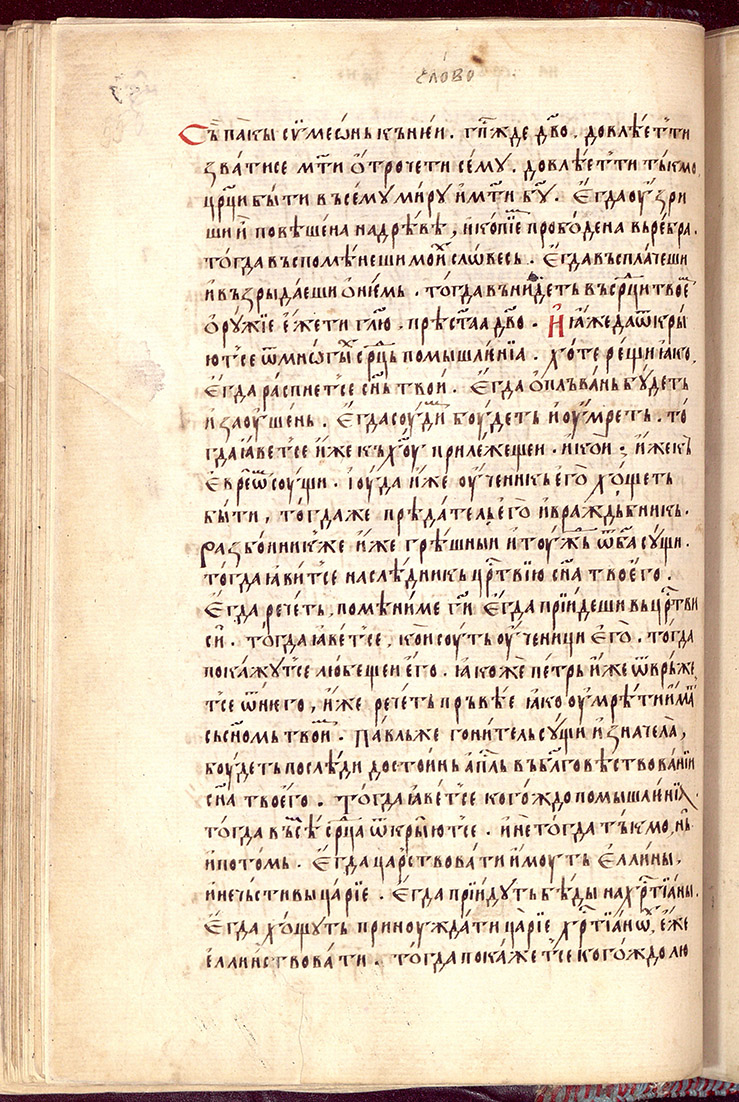 слово
Съ пакы сѷмеѡнь къ нѥи. гп҃жде дв҃о. довлѣет ти
звати се мт҃и ѻтрочети сему. довлѣет ти тькмо
цр҃ци быти въ сему миру и мт҃и бу҃. Ѥгда оузри
ши и повѣшена на дрѣвѣ, и копїе прободена вь ребра.
тогда въспомѣнеши мои словесь. Ѥгда въсплачеши
и възрыдаеши ѻ нѥмь. тогда вънидеть въ ср҃ци твоѥ
ѻружїе ѥже ти гл҃ю. прѣст҃аа дв҃о. И ꙗже да ѿкры
ют се ѿ мнѡгы ср҃ць помышлѥнїа. хоте рещи ꙗко
ѥгда распнет се сн҃ь твои. Ѥгда ѻплъвань будеть
и заоушень. Ѥгда соудим боудеть и оумреть. то
гда ꙗвет се иже къ хо҃у прилежещеи. и кои; иже къ
ѥврѥѡм соущи. Іоуда иже оученикь ѥго хощеть
быти, тогда же прѣдатель ѥго и враждьбникь.
Разбоиник же иже грѣшныи и тоужь ѿ ба҃ сущи.
тогда ꙗвит се наслѣдникь црт҃вїю сн҃а твоѥго.
Ѥгда речеть, помѣни ме ги҃ ѥгда прїидеши вь црт҃ви
си. тогда ꙗвет се, кои соуть оученици ѥго. тогда
покажут се любещеи ѥго. ꙗкоже петрь иже ѿврьже
т се ѿ нѥго, иже речеть прьвѣе ꙗко оумрѣти имам
сь сн҃омь твоим. Павль же гонитель сущи из начела,
боудеть послѣди достоинь ап҃ль въ бл҃говѣствованїи
сн҃а твоѥго. Тогда ꙗвет се когождо помышлѥнїа.
тогда въсѣ ср҃ца ѿкрыют се. и не тогда тькмо, нь
и потомь. Ѥгда царствовати имоуть ѥллины,
и нечьстивы царїе. Ѥгда прїидуть бѣды на хрт҃їаны.
Ѥгда хощуть приноуждати царїе хрт҃їанѡм, ѥже
ѥллинствовати. тогда покаже т се когождо лю